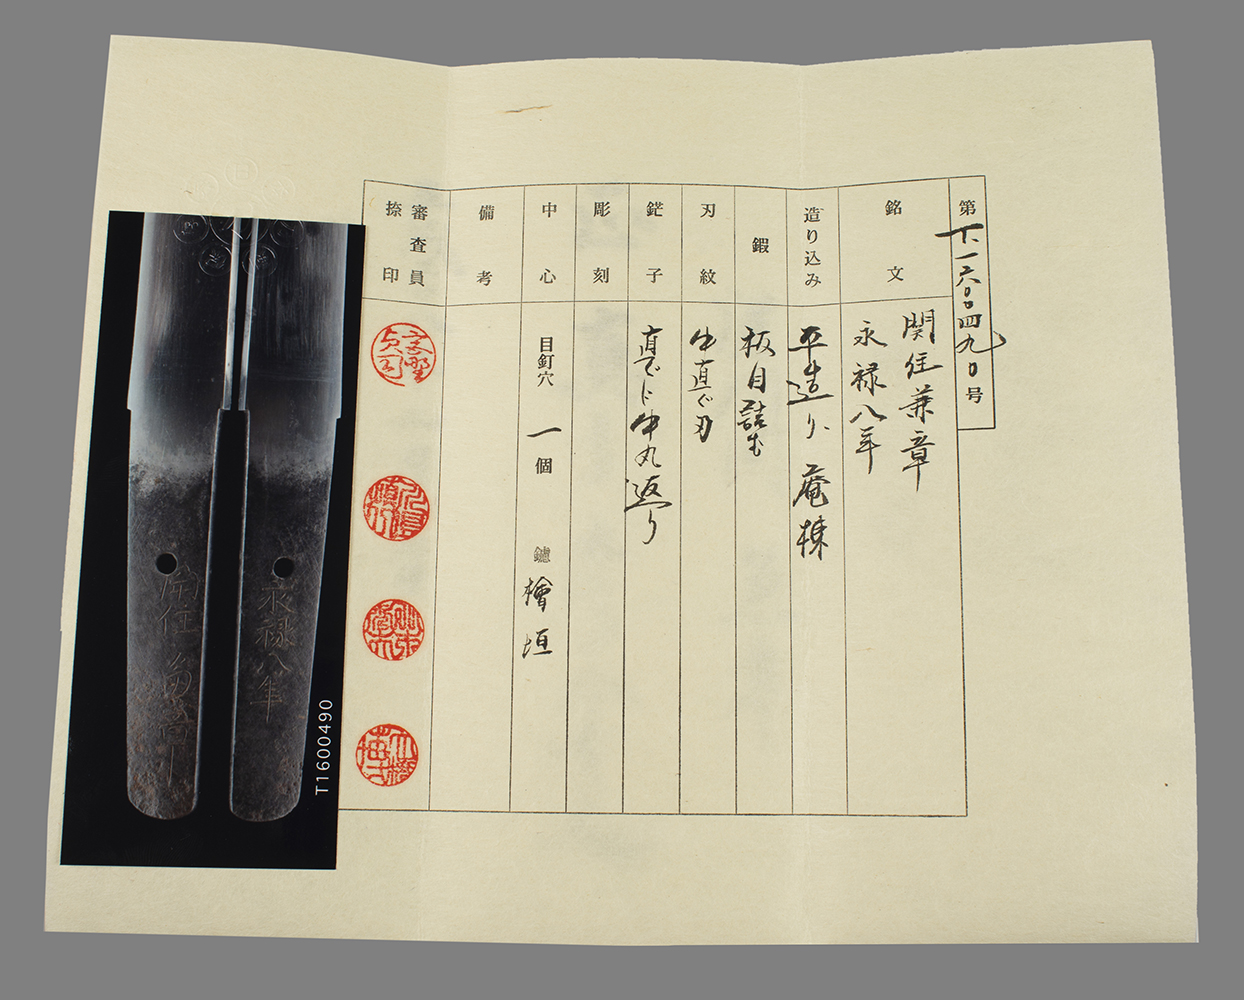 第T一六〇〇四九〇号
銘文
関住兼章
永禄八年
造り込み
平造り、庵棟
鍜
板目詰む
刃紋
中直ぐ刃
鋩子
直ぐに中丸返り
彫刻
中心
目釘穴 一個 鑢 檜垣
備考
審査員
捺印
永禄八年
関住兼章
T1600490